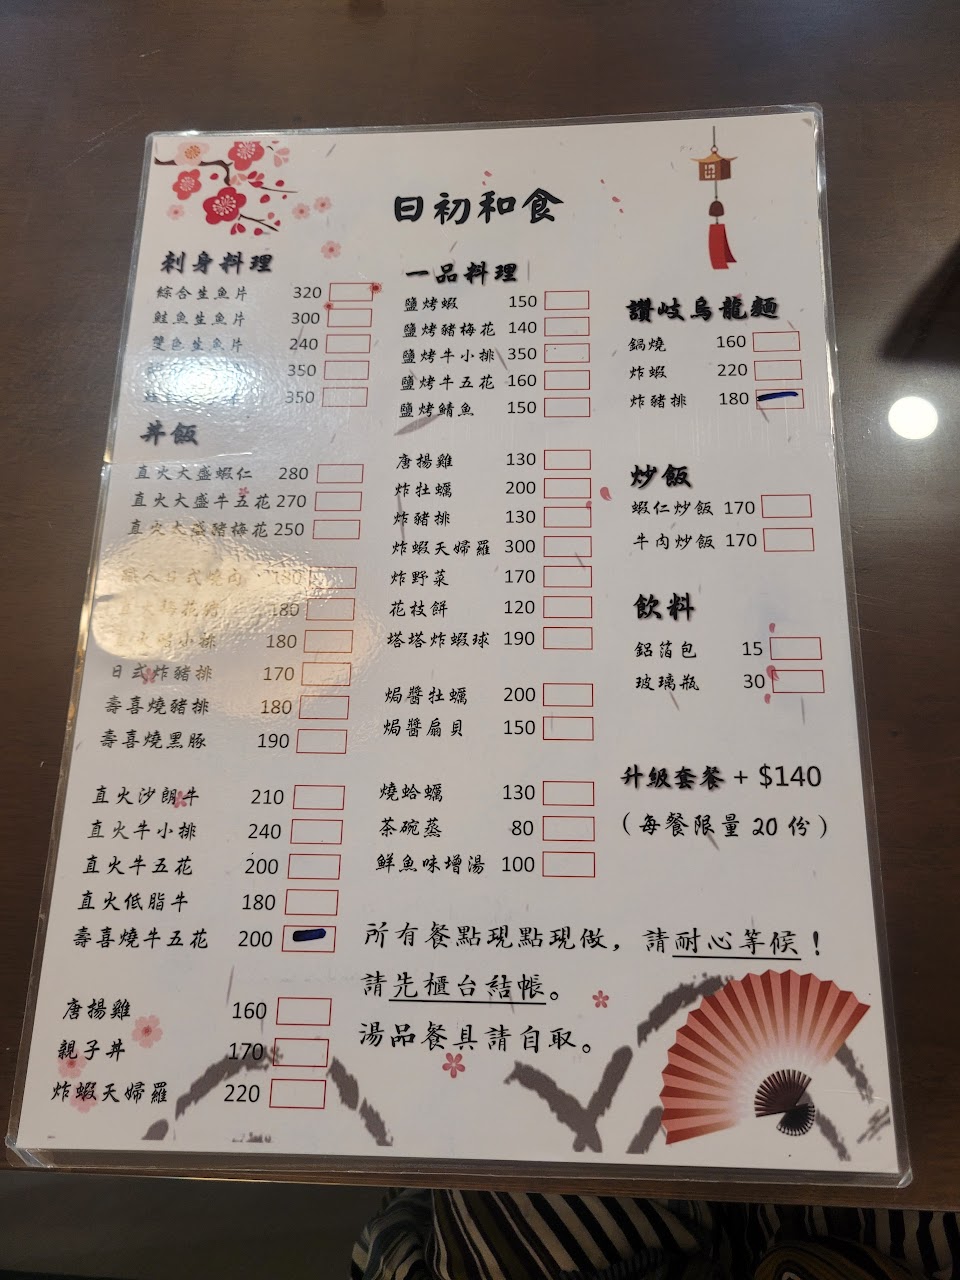 日初和食
刺身料理
綜合生魚片 320
鮭魚生魚片 300
雙色生魚片 240
350
350
丼飯
直火大盛蝦仁 280
直火大盛牛五花 270
直火大盛豬梅花 250
日式燒肉 180
180
小排 180
日式炸豬排 170
壽喜燒豬排 180
壽喜燒黑豚 190
直火沙朗牛 210
直火牛小排 240
直火牛五花 200
直火低脂牛 180
壽喜燒牛五花 200
唐揚雞 160
親子丼 170
炸蝦天婦羅 220
一品料理
鹽烤蝦 150
鹽烤豬梅花 140
鹽烤牛小排 350
鹽烤牛五花 160
鹽烤鯖魚 150
唐揚雞 130
炸牡蠣 200
炸豬排 130
炸蝦天婦羅 300
炸野菜 170
花枝餅 120
塔塔炸蝦球 190
焗醬牡蠣 200
焗醬扇貝 150
燒蛤蠣 130
茶碗蒸 80
鮮魚味增湯 100
讚岐烏龍麵
鍋燒 160
炸蝦 220
炸豬排 180
炒飯
蝦仁炒飯 170
牛肉炒飯 170
飲料
鋁箔包 15
玻璃瓶 30
升級套餐 + $140
（每餐限量 20 份）
所有餐點現點現做，請耐心等候！
請先櫃台結帳。
湯品餐具請自取。